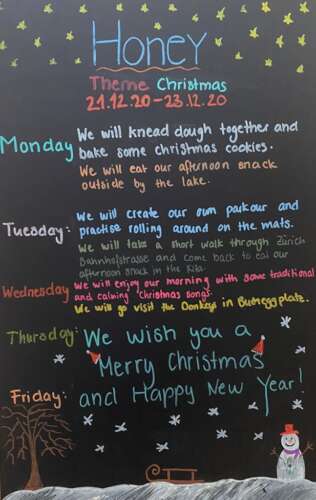 Honey
Theme Christmas
21.12.20-23.12.20
Monday We will knead dough together and
bake some christmas cookies.
We will eat our afternoon snack
outside by the lake.
Tuesday: We will create our own parkour and
practise rolling around on the mats.
We will take a short walk through Zürich
Bahnhofstrasse and come back to eat our
afternoon snack in the Kita.
Wednesday We will enjoy our morning with some traditional
and calming 'Christmas songs.
We will go visit the Donkeys in
Thursday: We wish you a
Merry Christmas
Friday: and Happy New Year!